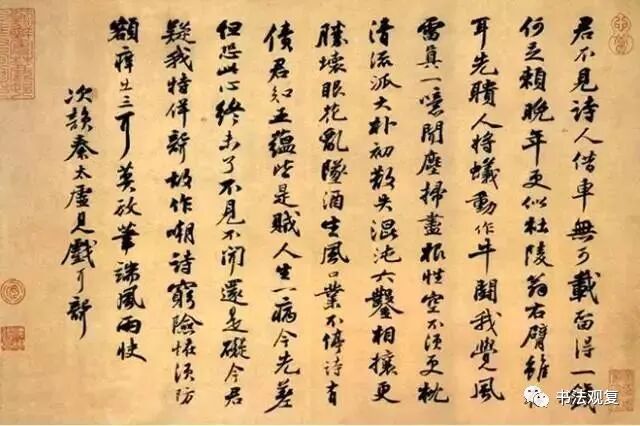 君不見詩人借車無可載留得一錢
何足賴晚年更似杜陵翁右臂雖
耳先聵人將蟻動作牛鬭我覺風
雷真一噫聞塵掃盡根性空不須更枕
清流派大朴初散失混沌六鑿相攘更
勝壞眼花亂墜酒生風口業不停詩有
債君知五蘊皆是賊人生一病今先差
但恐此心終未了不見不聞還是礙今君
疑我特佯聾故作嘲詩窮險怪須防
額痒出三耳莫放筆端風雨快
次韻秦太虛見戲耳聾
书法观复